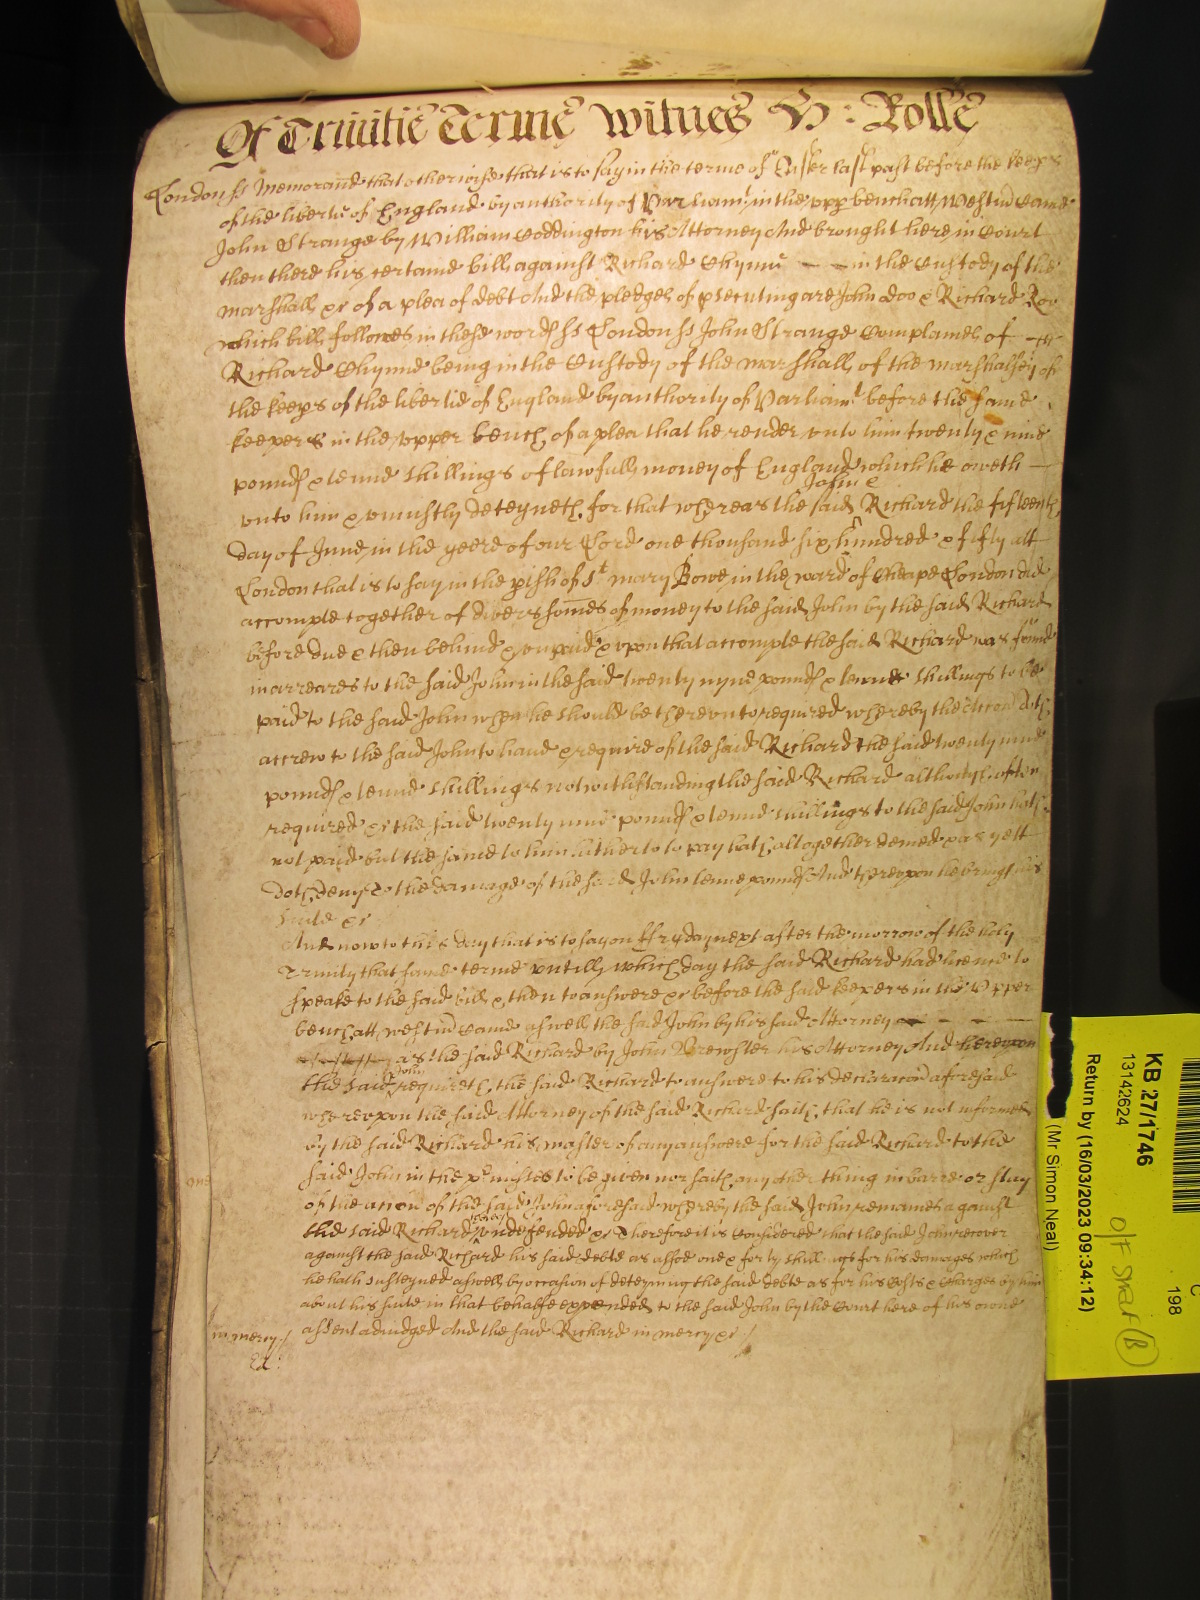 Of Trinitie Terme Witnes H: Rolle
London ss Memorand that otherwise that is to say in the terme of Easter last past before the keeps
of the libertie of England by authority of Parliamt in the upp bench att Westm Came
John Strange by William Coddington his Attorney And brought here in Court
then there his certaine bill against Richard Chynne — — in the Custody of the
marshall &c of a plea of debt And the pledges of psecuting are John doo & Richard Roo
which bill followes in these words ss London ss John Strange Complaines of
Richard Chynne being in the Custody of the marshall of the marshalsey of
the keeps of the libertie of England by authority of Parliamt before the same
keepers in the upper bench of a plea that he render unto him twenty & nine
pounds & tenne shillings of lawfull money of England which he oweth —
unto him & uniustly deteyneth for that whereas the said John & Richard the fifteenth
day of June in the yeere of our Lord one thousand six hundred & fifty att
London that is to say in the pish of St Mary Bowe in the ward of Cheape London did
accompte together of divers somes of money to the said John by the said Richard
before due & then behind & unpaid & upon that accompte the said Richard was found
in arreares to the said John in the said twenty nyne pounds & tenne shillings to be
paid to the said John when he should be thereunto required whereby the accon doth
accrew to the said John to haue & require of the said Richard the said twenty nine
pounds & tenne shillings notwithstanding the said Richard although often
required &c the said twenty nine pounds & tenne shillings to the said John hath
not paid but the same to him hitherto to pay hath altogether denied & as yett
doth deny To the damage of the said John tenne pounds And thereupon he brings his
suite &c
And now to this day that is to say on ffryday next after the morrow of the holy
Trinity that same terme untill which day the said Richard had licence to
speake to the said bill & then to answere &c before the said keepers in the Upper
bench att Westm Came aswell the said John by his said Attorney — — —
as the said Richard by John Brewster his Attorney And hereupon
the said John requireth the said Richard to answere to his declaracon aforesaid
whereupon the said Attorney of the said Richard saith that he is not informed
by the said Richard his master of any answere for the said Richard to the
said John in the pmisses to be given nor saith any other thing in barre or stay
of the action of the said John aforesaid whereby the said John remaines against
the said Richard undefended &c Therefore it is Considered that the said John recover
against the said Richard his said debte as alsoe one & forty shillings for his damages which
he hath susteyned aswell by occasion of deteyning the said debte as for his Costs & Charges by him
about his suite in that behalfe expended to the said John by the Court here of his owne
assent adiudged And the said Richard in mercy &c /
in mercy /
KB 27/1746
13142624
198
Return by (16/03/2023 09:34:12)
(Mr Simon Neal)
C
B